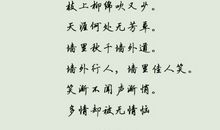 枝上柳绵吹又少。
天涯何处无芳草。
墙里秋千墙外道。
墙外行人，墙里佳人笑。
笑渐不闻声渐悄。
多情却被无情恼